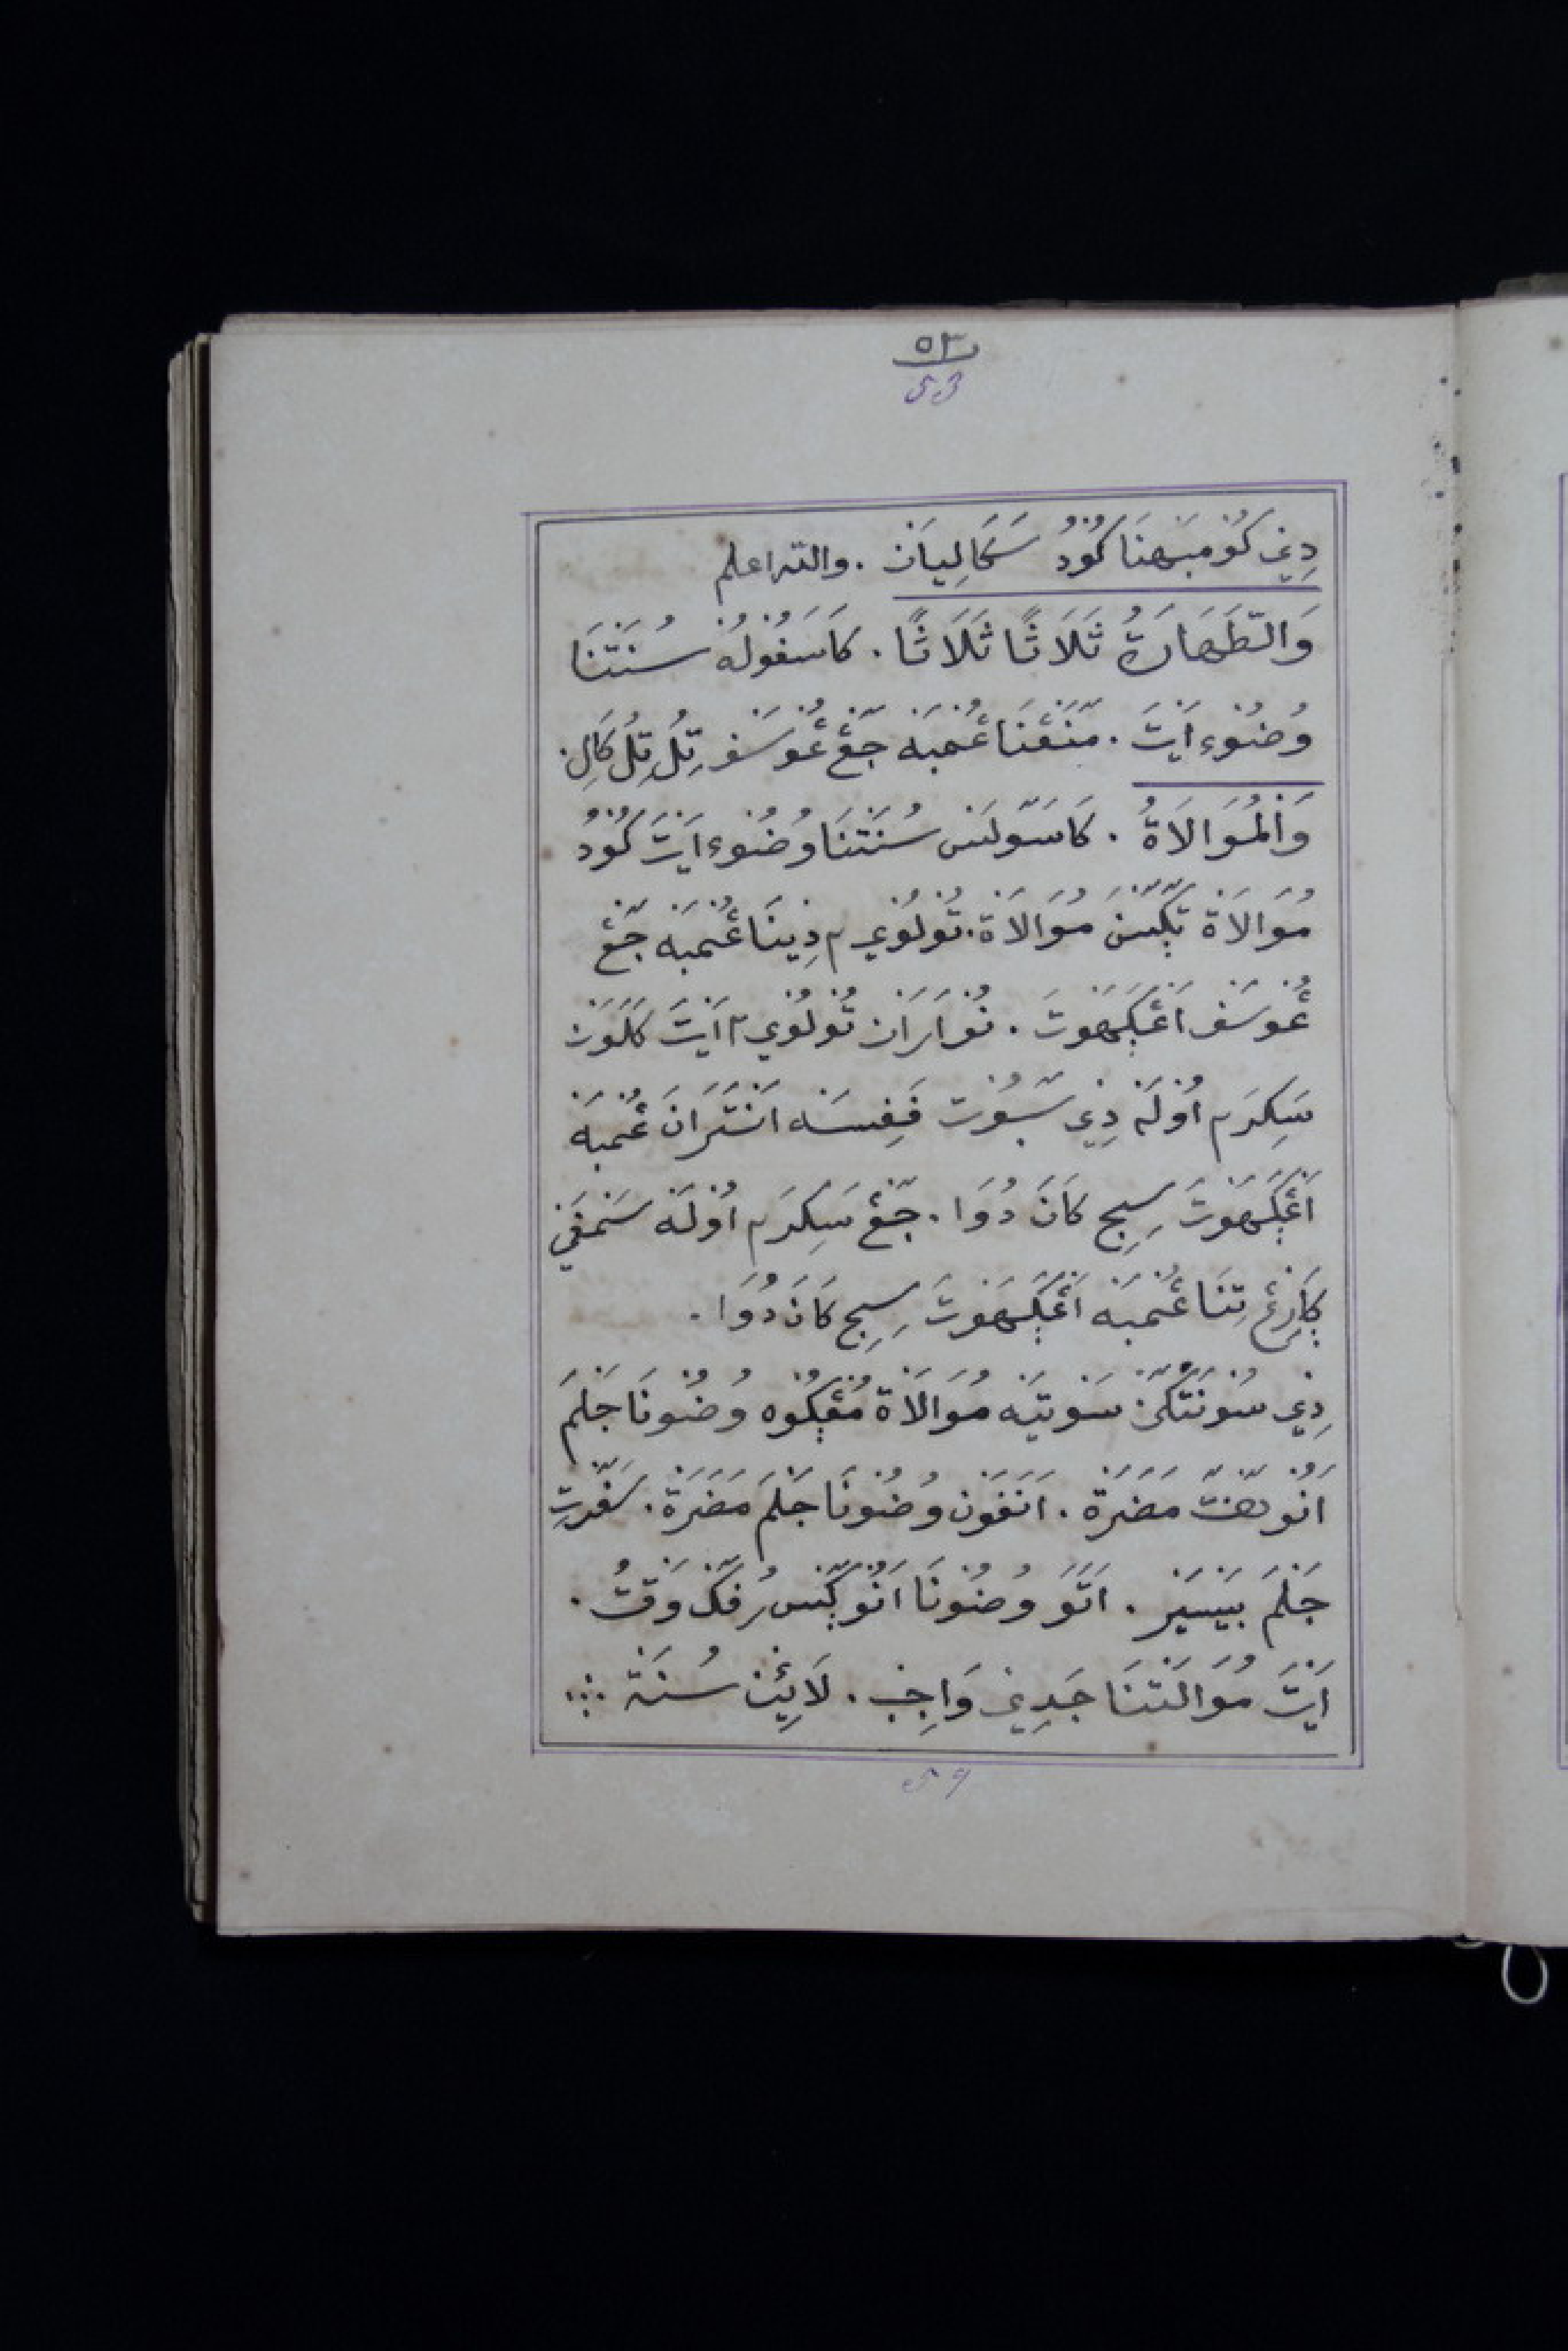 ٥٣
53
دِيْنِيْ كُوْمبَهنَا كُوْدُ سَكَالِيَانْ . والله اعلم
وَالطَّهَارَةُ ثَلَاثًا ثَلَاثًا . كَاسَفُوْلُهْ سُنَّتْنَا
وُضُوْءْ اَيْتَ . مَّنَڠْنَا عُمْبَهْ جَّڠْ عُوْسَفْ تِلُ تِلُ كَالِ .
وَالْمُوَالَاةُ . كَاسَّوْلَسْ سُنَّتْنَا وُضُوْءْ اَيْتَ كُوْدُ
مُوَالَاةْ تَݢَّسْنَ مُوَالَاةْ . تُوْلُوْيْ ٢ دِيْنَا عُمْبَهْ جَّڠْ
عُوْسَفْ اَڠْݢَهَوْتَ . نُوْ اَرَانْ تُوْلُوْيْ ٢ اَيْتَ كَلَوَنْ
سَكِرَ ٢ اُوْلَهْ دِيْ سَّبُوْتْ فَفِسَهْ اَنْتَرَانَ عُمْبَهْ
اَڠْݢَهَوْتَ سِيجِ كَانَ دُوَا . جَّڠْ سَكِرَ ٢ اُوْلَهْ سَمْفَيْ
ݢَارِيْڠْ تِنَا عُمْبَهْ اَڠْݢَهَوْتَ سِيجِ كَانَ دُوَا .
دِيْ سُوْنَتْكَنْ سَوْتِيَهْ مُوَالَاةْ مُڠْݢُوْهْ وُضُوْنَا جَلْمَ
اَنُوْ هَنْتَّ مَضَرَةْ . اَنَفَوْنْ وُضُوْنَا جَلْمَ مَضَرَةْ . سَفَرْتِ
جَلْمَ بَيْسَيْرْ . اَتَوَ وُضُوْنَا اَنُوْ ݢَّسْ رُفَكْ وَقْتُ .
اَيْتَ مُوَالَتْنَا جَدِيْ وَاجِبْ . لَائِيْنْ سُنَةْ ∴
54